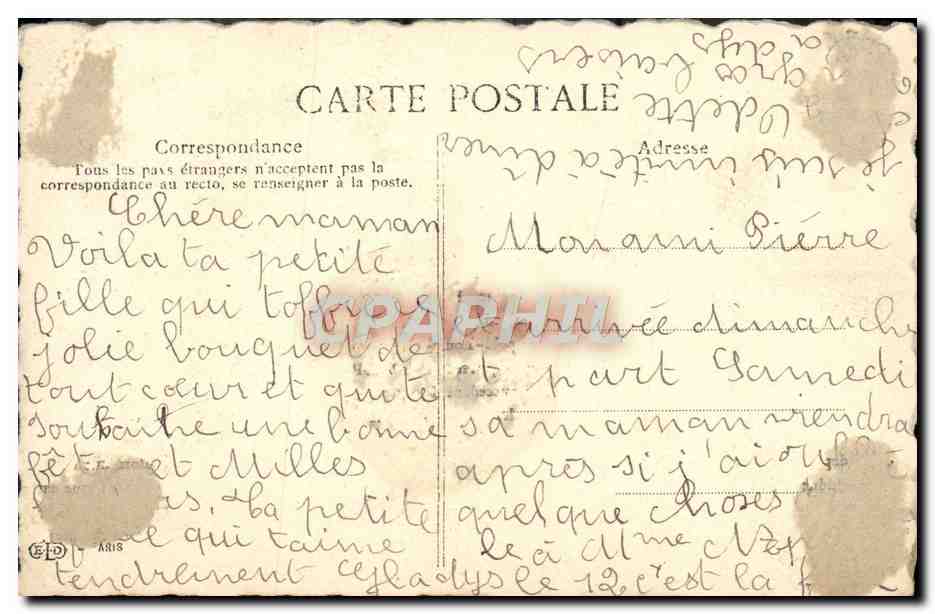 CARTE POSTALE
Correspondance
Tous les pays étrangers n'acceptent pas la
correspondance au recto, se renseigner à la poste.
Adresse
Chére maman
Voila ta petite
fille qui t'offre
jolie bouquet de
tout cœur et qui te
souhaite une bonne
fêt et Milles
La petite
qui t'aime
tendrement Gladys le 12
Mon ami Piérre
est arrivée dimanche
part Samedi
sa maman viendra
après si j'ai
quelque choses
le à Mme
c'est la
je suis invité a diner
Odette
gros baisers
CPAPHIL
ELD
ARIS